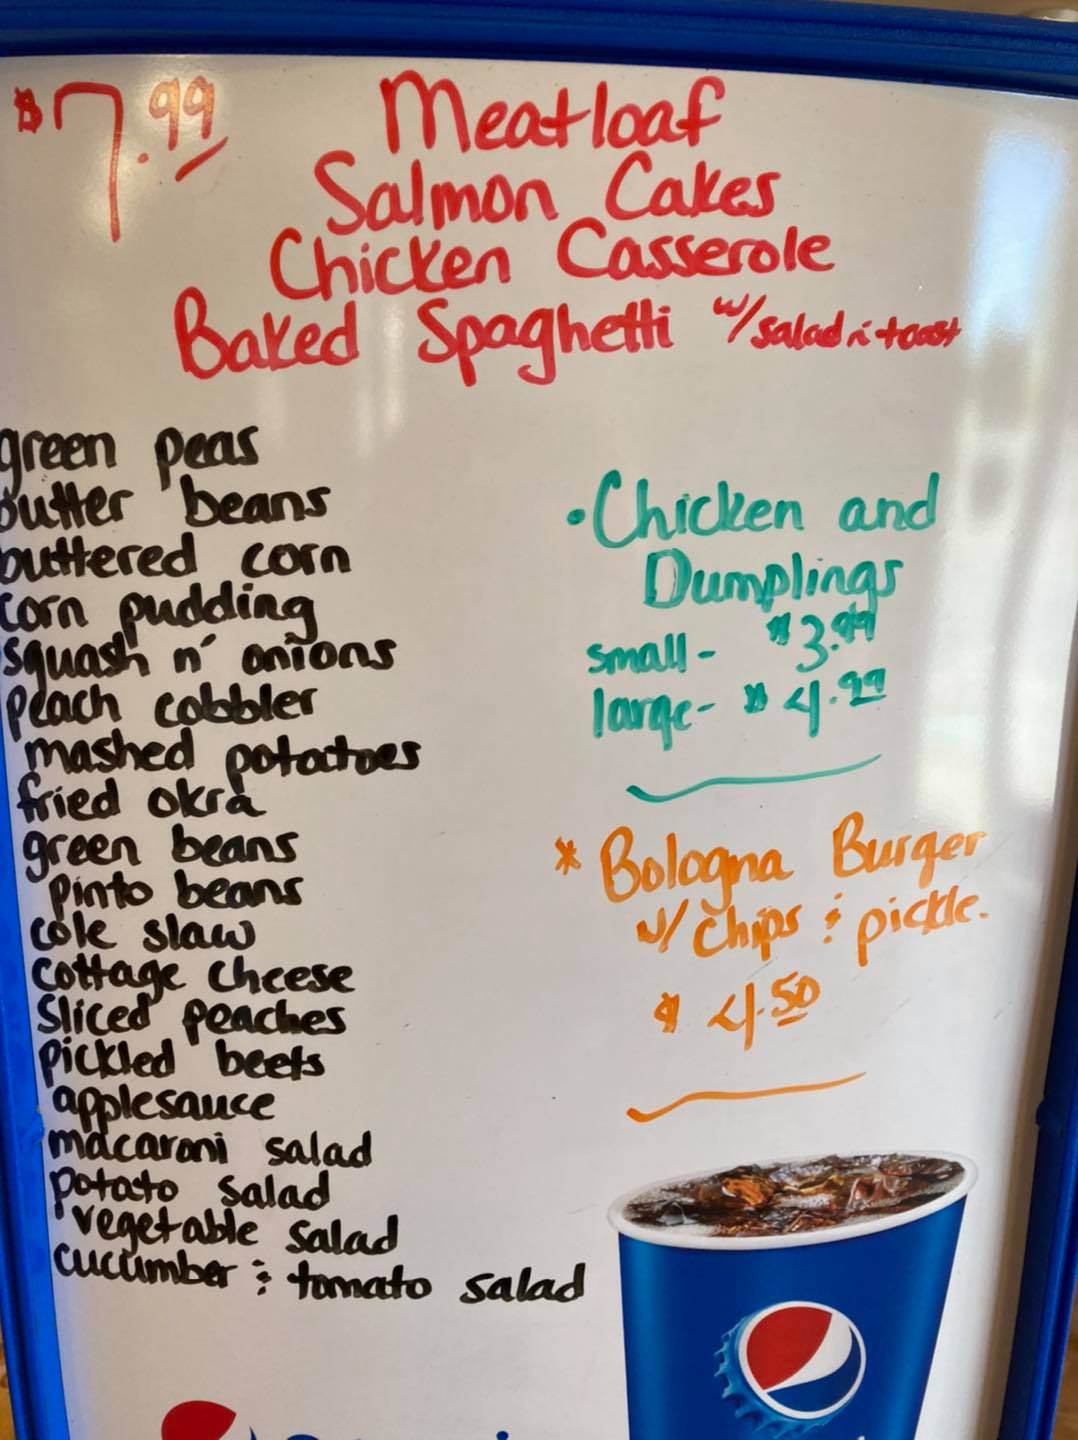 $7.99
Meatloaf
Salmon Cakes
Chicken Casserole
Baked Spaghetti w/ salad n toast
green peas
butter beans
buttered corn
corn pudding
squash n' onions
peach cobbler
mashed potatoes
fried okra
green beans
pinto beans
cole slaw
cottage cheese
sliced peaches
pickled beets
applesauce
macaroni salad
potato salad
vegetable salad
cucumber & tomato salad
• Chicken and
Dumplings
small - $3.99
large - $4.99
* Bologna Burger
w/ chips & pickle.
$4.50